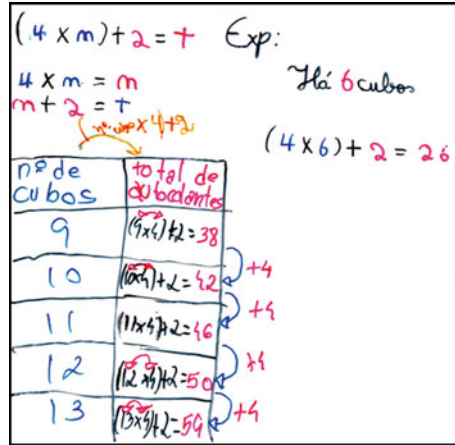 (4 × m) + 2 = t
4 × m = m
m + 2 = t
× 4 + 2
Exp:
Há 6 cubos
(4 × 6) + 2 = 26
nº de cubos | total de autocolantes
9 | (9×4)+2=38
10 | (10×4)+2=42
11 | (11×4)+2=46
12 | (12×4)+2=50
13 | (13×4)+2=54
+4
+4
+4
+4